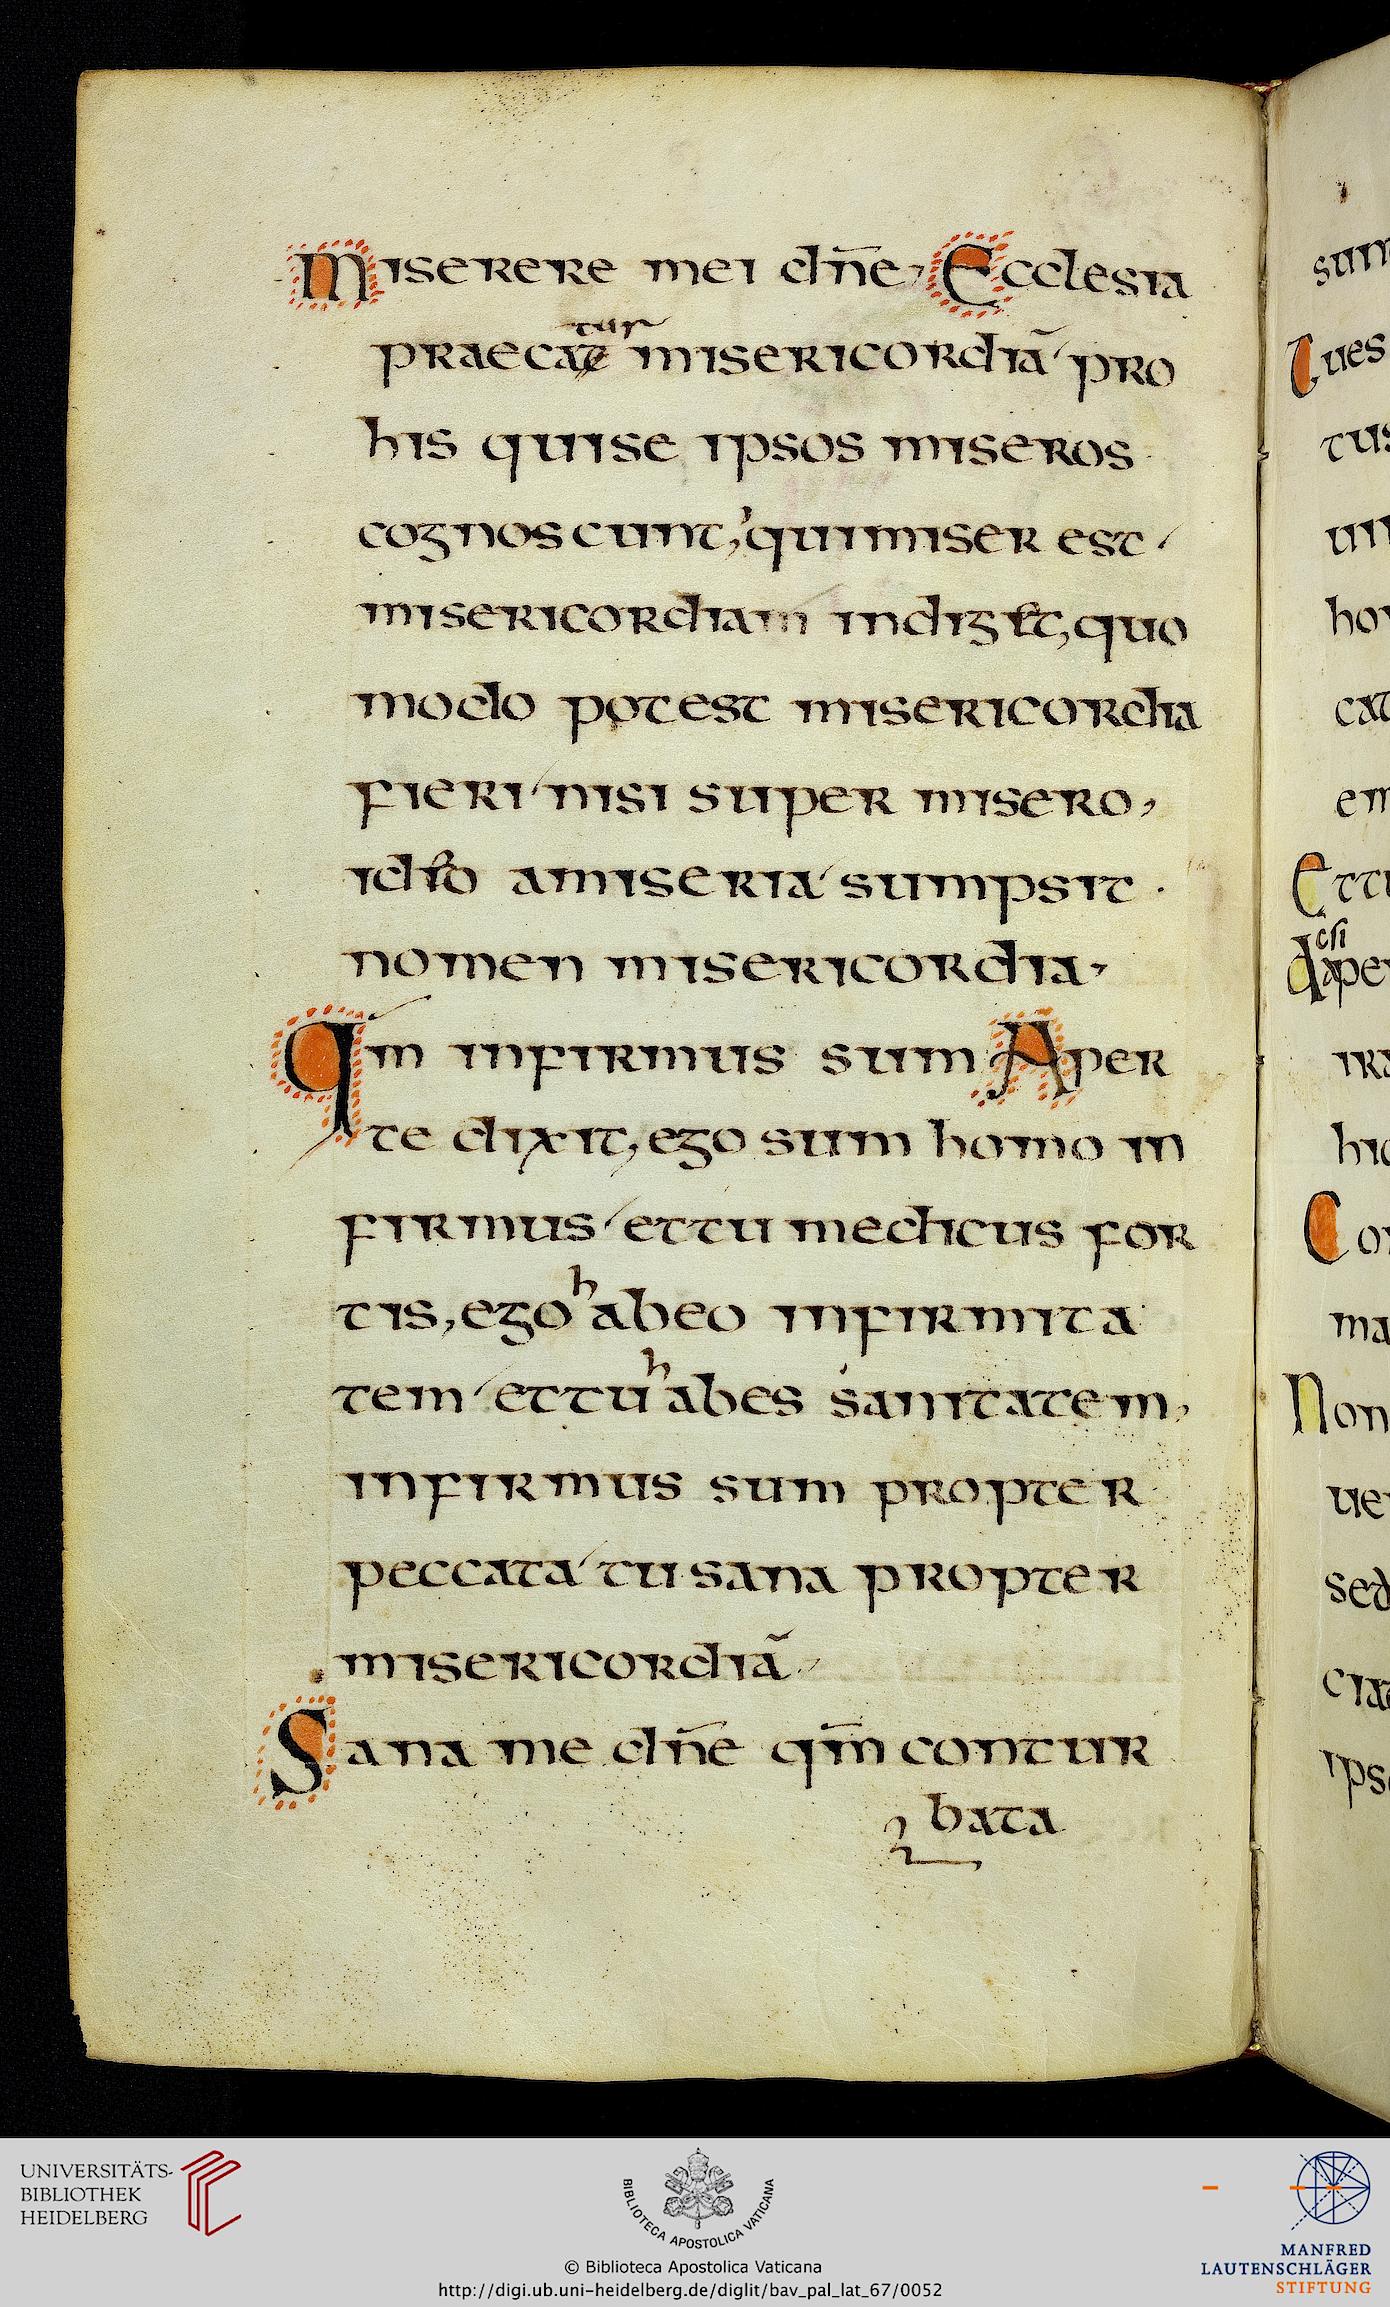 Miserere mei dn̄e, Ecclesia
praecate tur misericordiā pro
his quise ipsos miseros
cognoscunt, quimiser est
misericordiam indiget, quo
modo potest misericordia
fieri nisi super misero,
ideo amiseria sumpsit.
nomen misericordia,
Qm̄ infirmus sum Aper
te dixit, ego sum homo in
firmus et tu medicus for
tis, ego habeo infirmita
tem et tu habes sanitatem,
infirmus sum propter
peccata tu sana propter
misericordiā,
Sana me dn̄e qm̄ contur
bata
sum
Tues
tus
uin
hov
cat
em
Ettu
Aape
csi
ira
hic
Con
ma
Non
ue
sed
ciat
ipse
UNIVERSITÄTS-
BIBLIOTHEK
HEIDELBERG
BIBLIOTECA APOSTOLICA VATICANA
© Biblioteca Apostolica Vaticana
http://digi.ub.uni-heidelberg.de/diglit/bav_pal_lat_67/0052
MANFRED
LAUTENSCHLÄGER
STIFTUNG